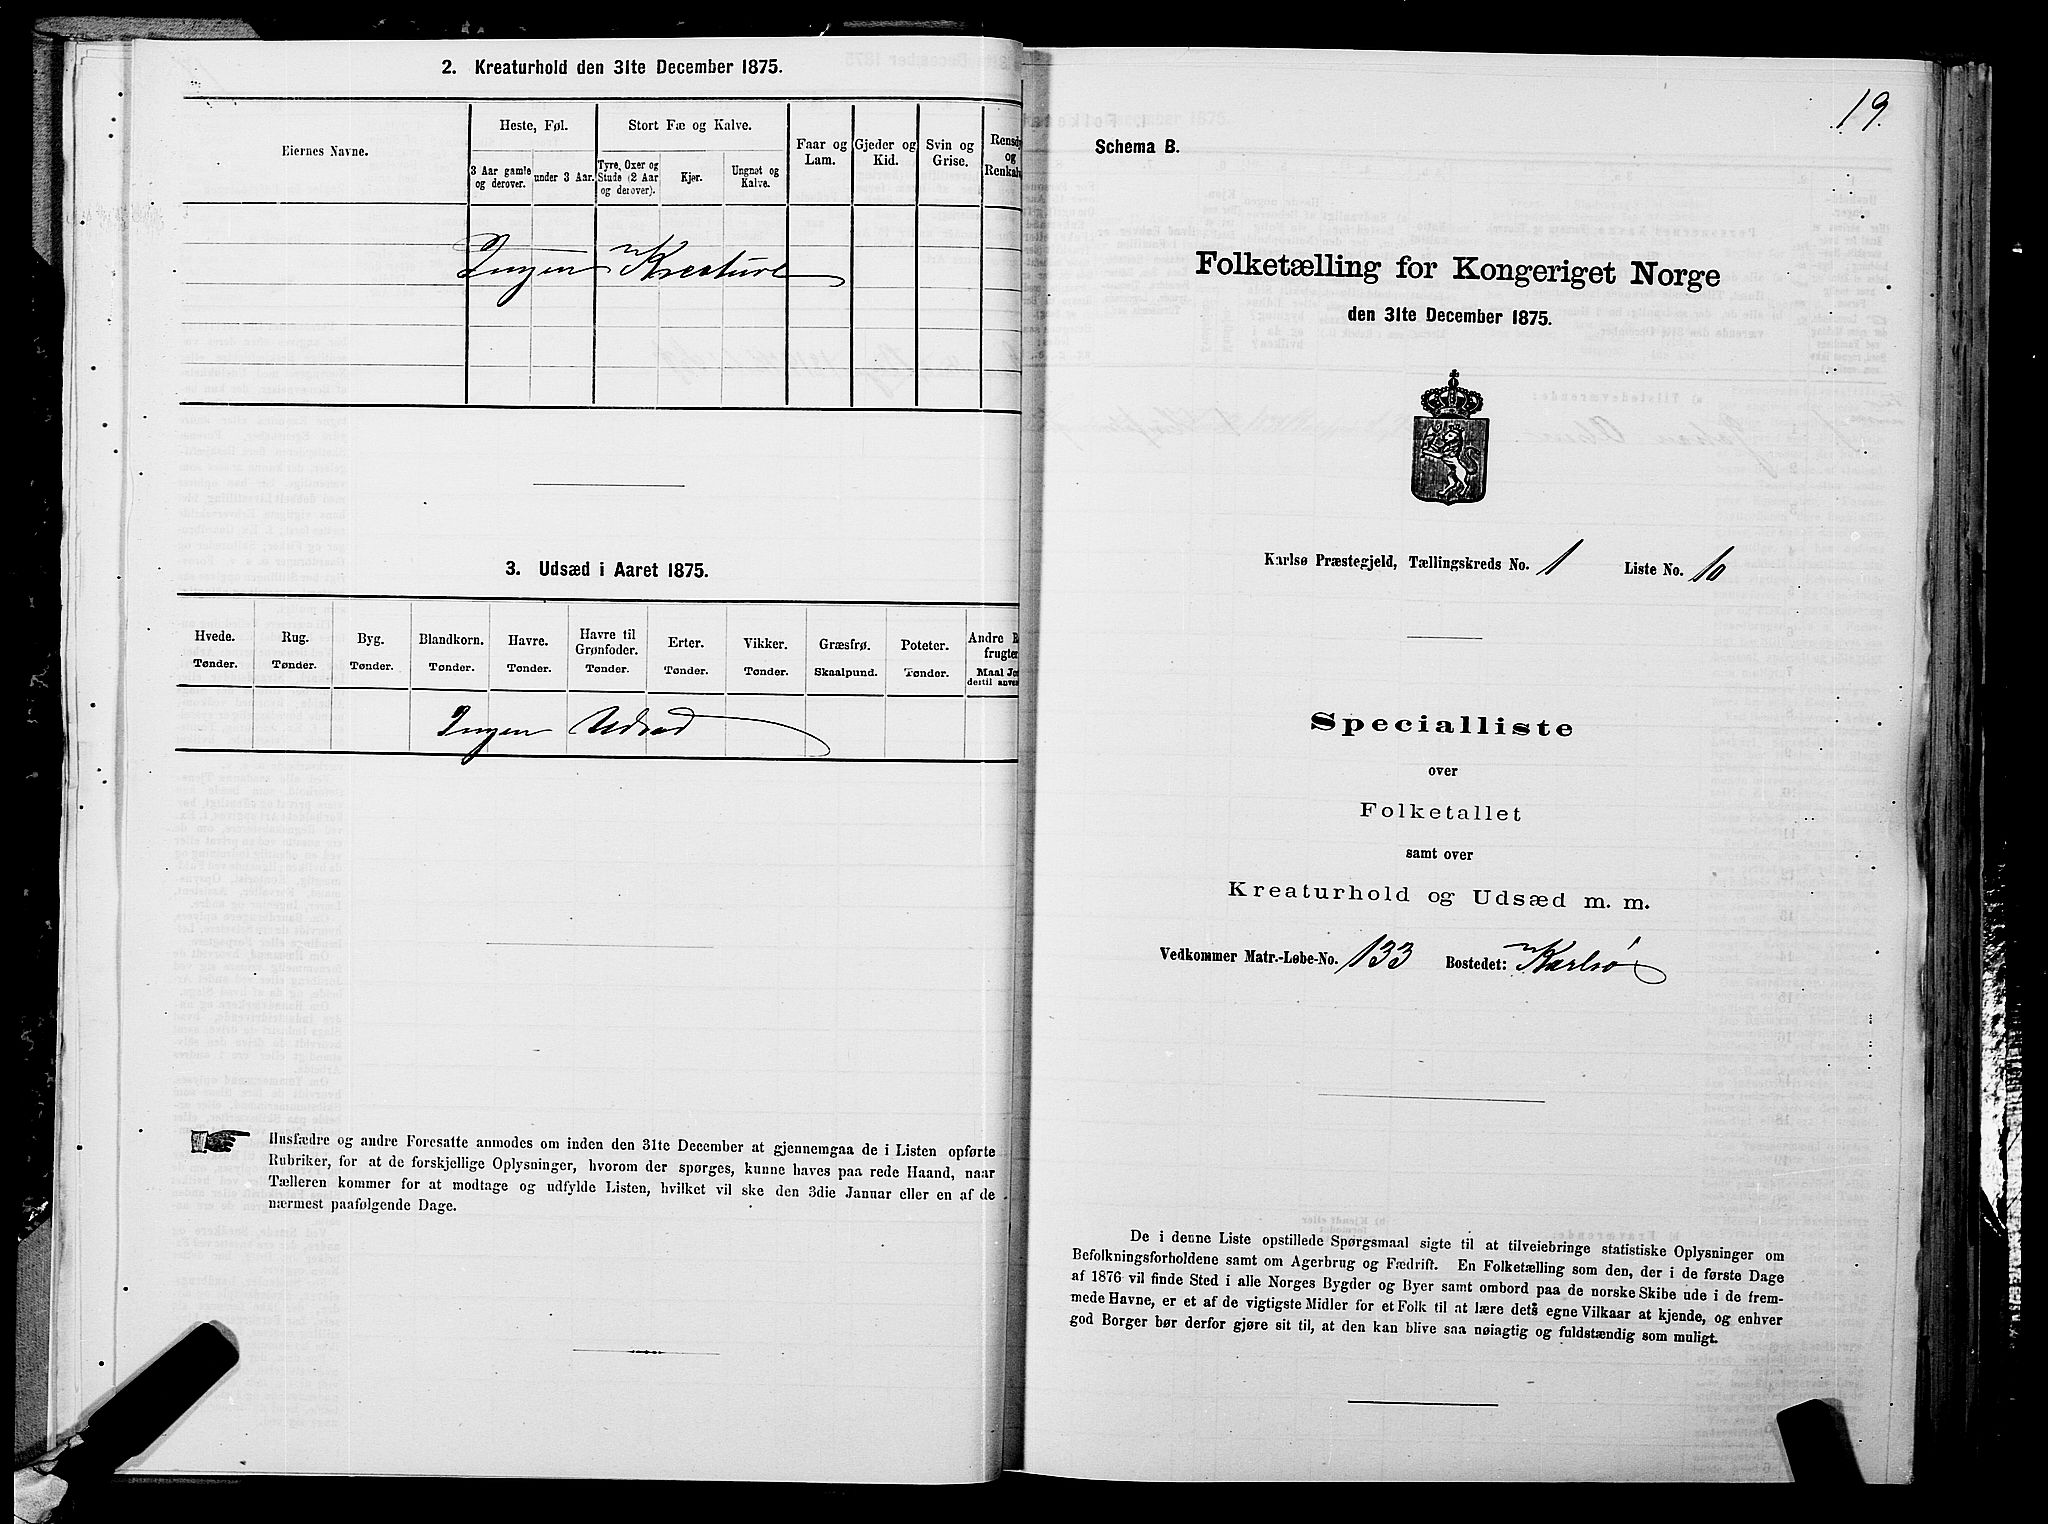 2. Kreaturhold den 31te December 1875.
Eiernes Navne.
Heste, Føl.
Stort Fæ og Kalve.
Faar og
Lam.
Gjeder og
Kid.
Svin og
Grise.
Rensdy
og
Renkalv
3 Aar gamle
og derover.
under 3 Aar.
Tyre, Oxer og
Stude (2 Aar
og derover).
Kjør.
Ungnøt og
Kalve.
Ingen Kreature
3. Udsæd i Aaret 1875.
Hvede.
Tønder.
Rug.
Tønder.
Byg.
Tønder.
Blandkorn.
Tønder.
Havre.
Tønder.
Havre til
Grønfoder.
Tønder.
Erter.
Tønder.
Vikker.
Tønder.
Græsfrø.
Skaalpund.
Poteter.
Tønder.
Andre R
frugter
Maal Jor
dertil anven
Ingen Udsæd
Husfædre og andre Foresatte anmodes om inden den 31te December at gjennemgaa de i Listen opførte
Rubriker, for at de forskjellige Oplysninger, hvorom der spørges, kunne haves paa rede Haand, naar
Tælleren kommer for at modtage og udfylde Listen, hvilket vil ske den 3die Januar eller en af de
nærmest paafølgende Dage.
19.
Schema B.
Folketælling for Kongeriget Norge
den 31te December 1875.
Karlsø Præstegjeld, Tællingskreds No. 1 Liste No. 10
Specialliste
over
Folketallet
samt over
Kreaturhold og Udsæd m. m.
Vedkommer Matr.-Løbe-No. 133 Bostedet: Karlsø
De i denne Liste opstillede Spørgsmaal sigte til at tilveiebringe statistiske Oplysninger om
Befolkningsforholdene samt om Agerbrug og Fædrift. En Folketælling som den, der i de første Dage
af 1876 vil finde Sted i alle Norges Bygder og Byer samt ombord paa de norske Skibe ude i de frem-
mede Havne, er et af de vigtigste Midler for et Folk til at lære dets egne Vilkaar at kjende, og enhver
god Borger bør derfor gjøre sit til, at den kan blive saa nøiagtig og fuldstændig som muligt.